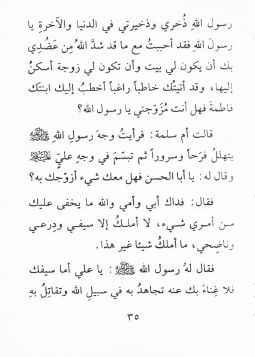 رسول اللهِ ذُخري وذخيرتي في الدنيا والآخرةِ يا
رسولَ اللهِ فقد أحببتُ مع ما قد شدَّ اللهُ مِن عَضُدِي
بك أن يكون لي بيت وأن تكون لي زوجة أسكنُ
إليها، وقد أتيتُك خاطباً راغباً أخطبُ إليك ابنتَك
فاطمةَ فهل أنت مُزَوّجني يا رسول الله؟
قالت أم سلمة: فرأيتُ وجهَ رسولِ الله ﷺ
يتهللُ فَرَحاً وسروراً ثم تبسّمَ في وجهِ عليّ ﷺ
وقال له: يا أبا الحسن فهل معك شيء أزوّجك به؟
فقال: فداك أبي وأمي والله ما يخفى عليك
من أمري شيء، لا أملكُ إلا سيفي ودِرعي
وناضحي، ما أملكُ شيئا غير هذا.
فقال لهُ رسول الله ﷺ: يا علي أما سيفك
فلا غِناءَ بك عنه تجاهدُ به في سبيل الله وتقاتِلُ بهِ
٣٥